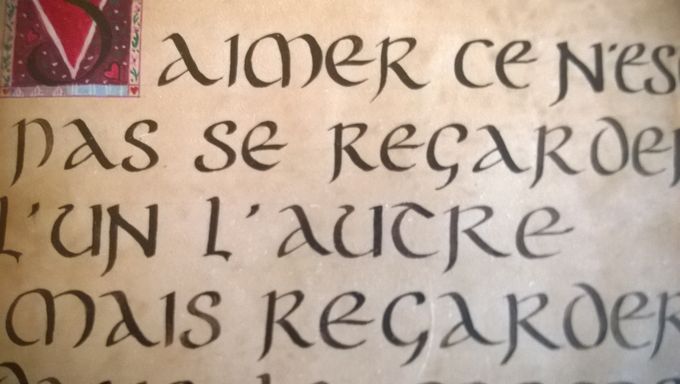 S'AIMER CE N'ES
PAS SE REGARDER
L'UN L'AUTRE
MAIS REGARDER